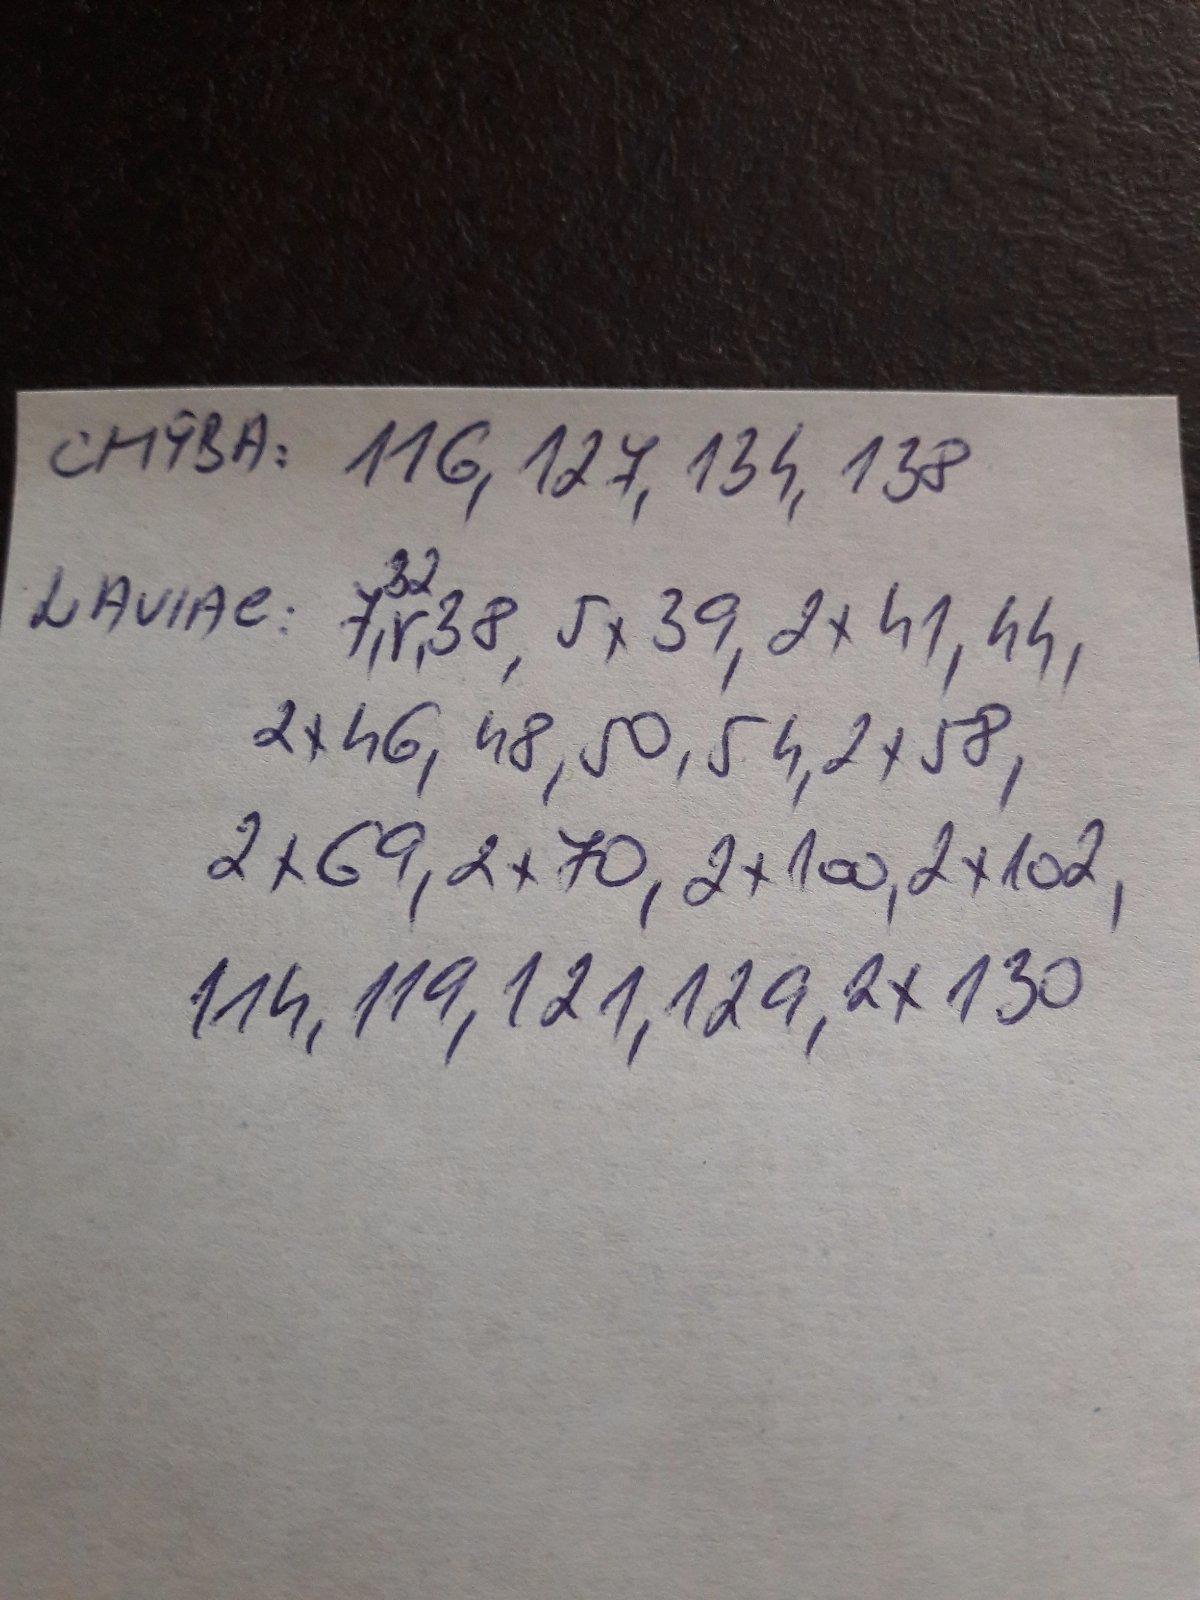 CHÝBA: 116, 127, 134, 138
NAVIAC: 7, 32, 38, 5x39, 2x41, 44,
2x46, 48, 50, 54, 2x58,
2x69, 2x70, 2x100, 2x102,
114, 119, 121, 129, 2x130